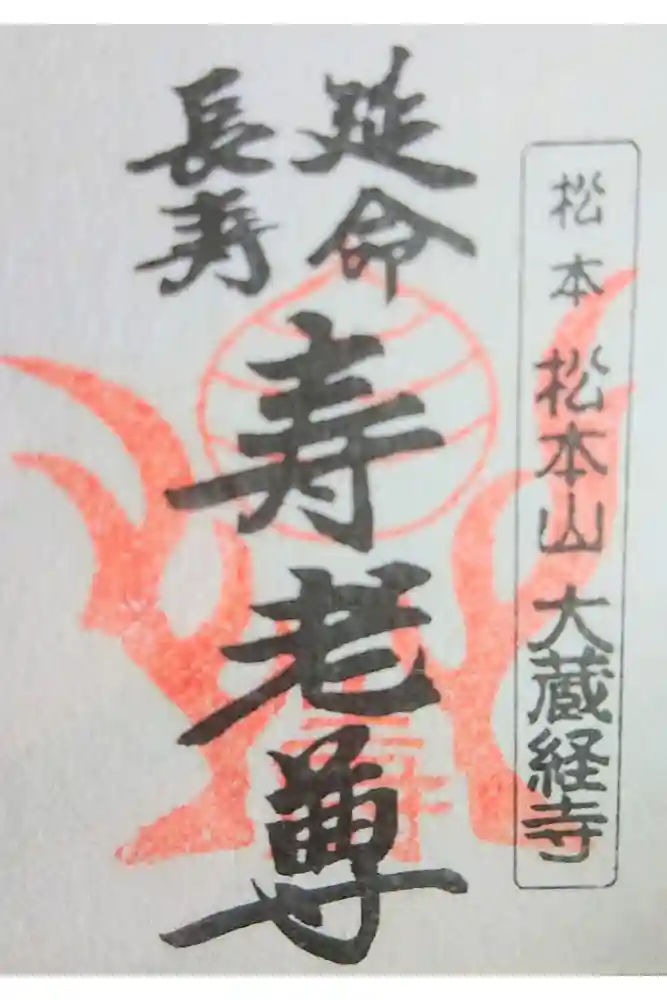 松本 松本山 大蔵経寺
延命
長寿
寿老尊